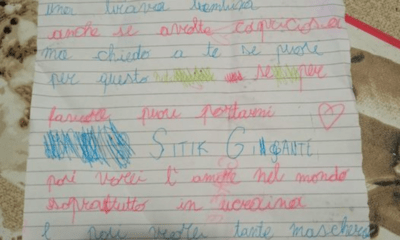 una brava bambina
anche se a volte capricciosa
ma chiedo a te se puoi
per questo se per
favore puoi portarmi
SITIK GINGANTE
poi vorrei l'amore nel mondo
soprattutto in ucraina
E poi vorrei tante maschere